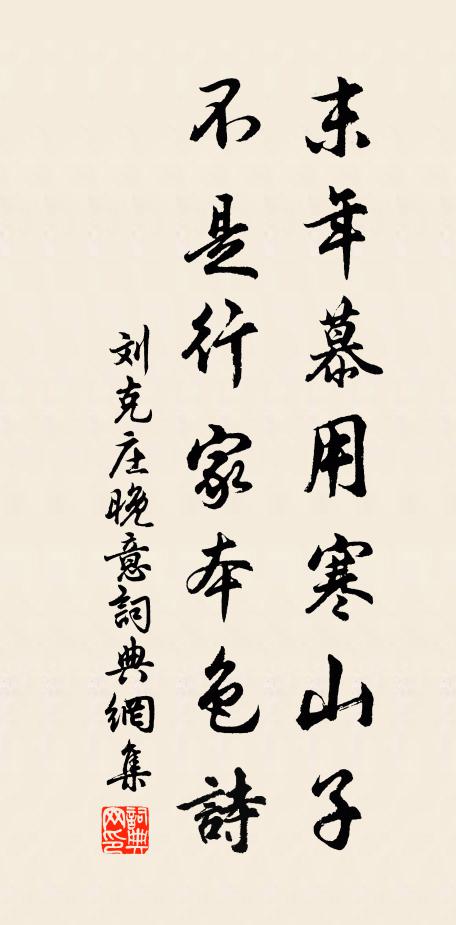 末年慕用寒山子
不是行家本色詩
刘克庄晚意詞典網集
詞典网印